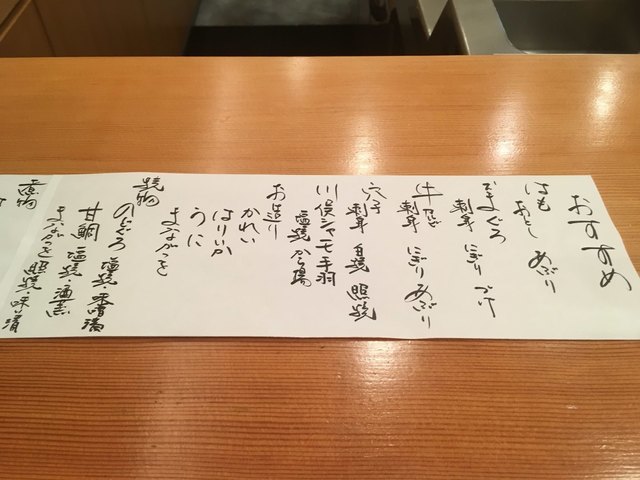 おすすめ
はも
おとし あぶり
本まぐろ
刺身 にぎり づけ
牛
刺身 にぎり あぶり
穴子
刺身 白焼 照焼
川俣シャモ手羽
塩焼 から揚
お造り
かれい
はりいか
うに
まながつを
焼物
のどぐろ 塩焼・味噌漬
甘鯛 塩焼・酒蒸
まながつを 照焼・味噌漬
煮物